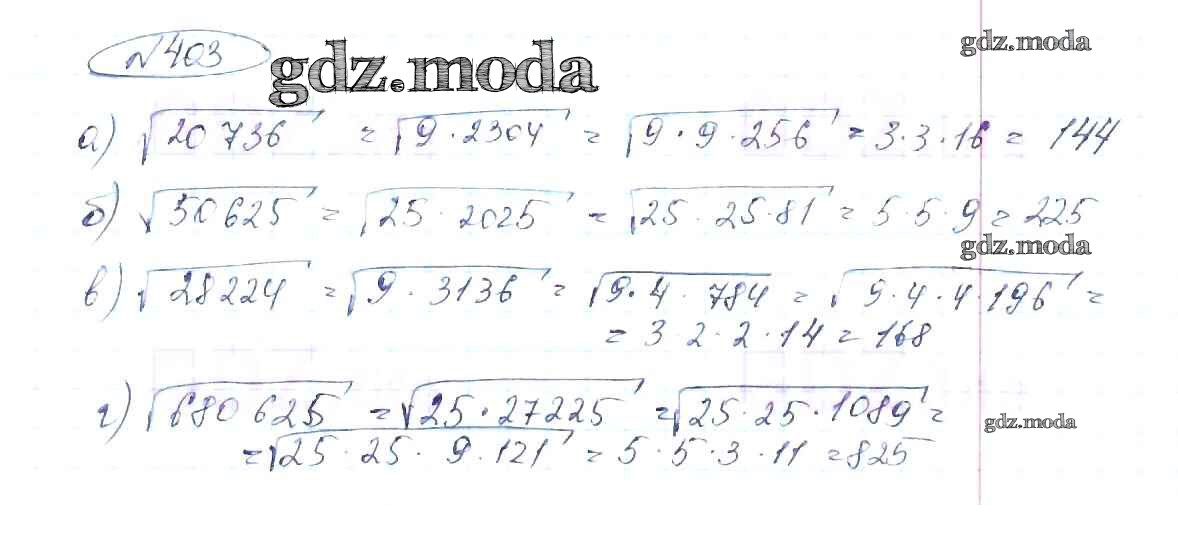 №403
gdz.moda
gdz.moda
а) √20 736 = √9 · 2304 = √9 · 9 · 256 = 3·3·16 = 144
б) √50625 = √25 · 2025 = √25 · 25·81 = 5·5·9 = 225
gdz.moda
в) √28224 = √9 · 3136 = √9·4 · 784 = √9·4·4·196 =
= 3·2·2·14 = 168
г) √680 625 = √25·27225 = √25·25·1089 =
gdz.moda
= √25·25·9·121 = 5·5·3·11 = 825